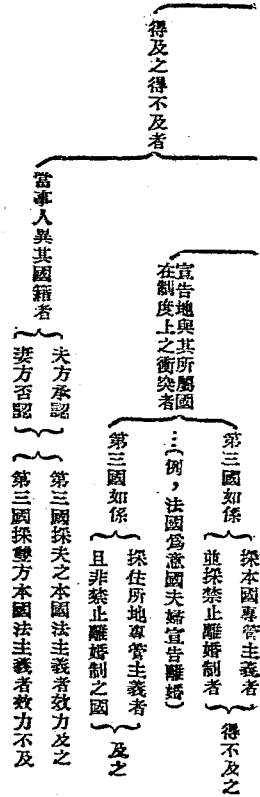 得及之得不及者
宣告地與其所屬國
在制度上之衝突者
第三國如係
採本國專管主義者
並採禁止離婚制者
得不及之
…(例,法國爲意國夫婦宣告離婚)
第三國如係
採住所地專管主義者
且非禁止離婚制之國
及之
當事人異其國籍者
夫方承認
妻方否認
第三國採夫之本國法主義者效力及之
第三國採雙方本國法主義者效力不及